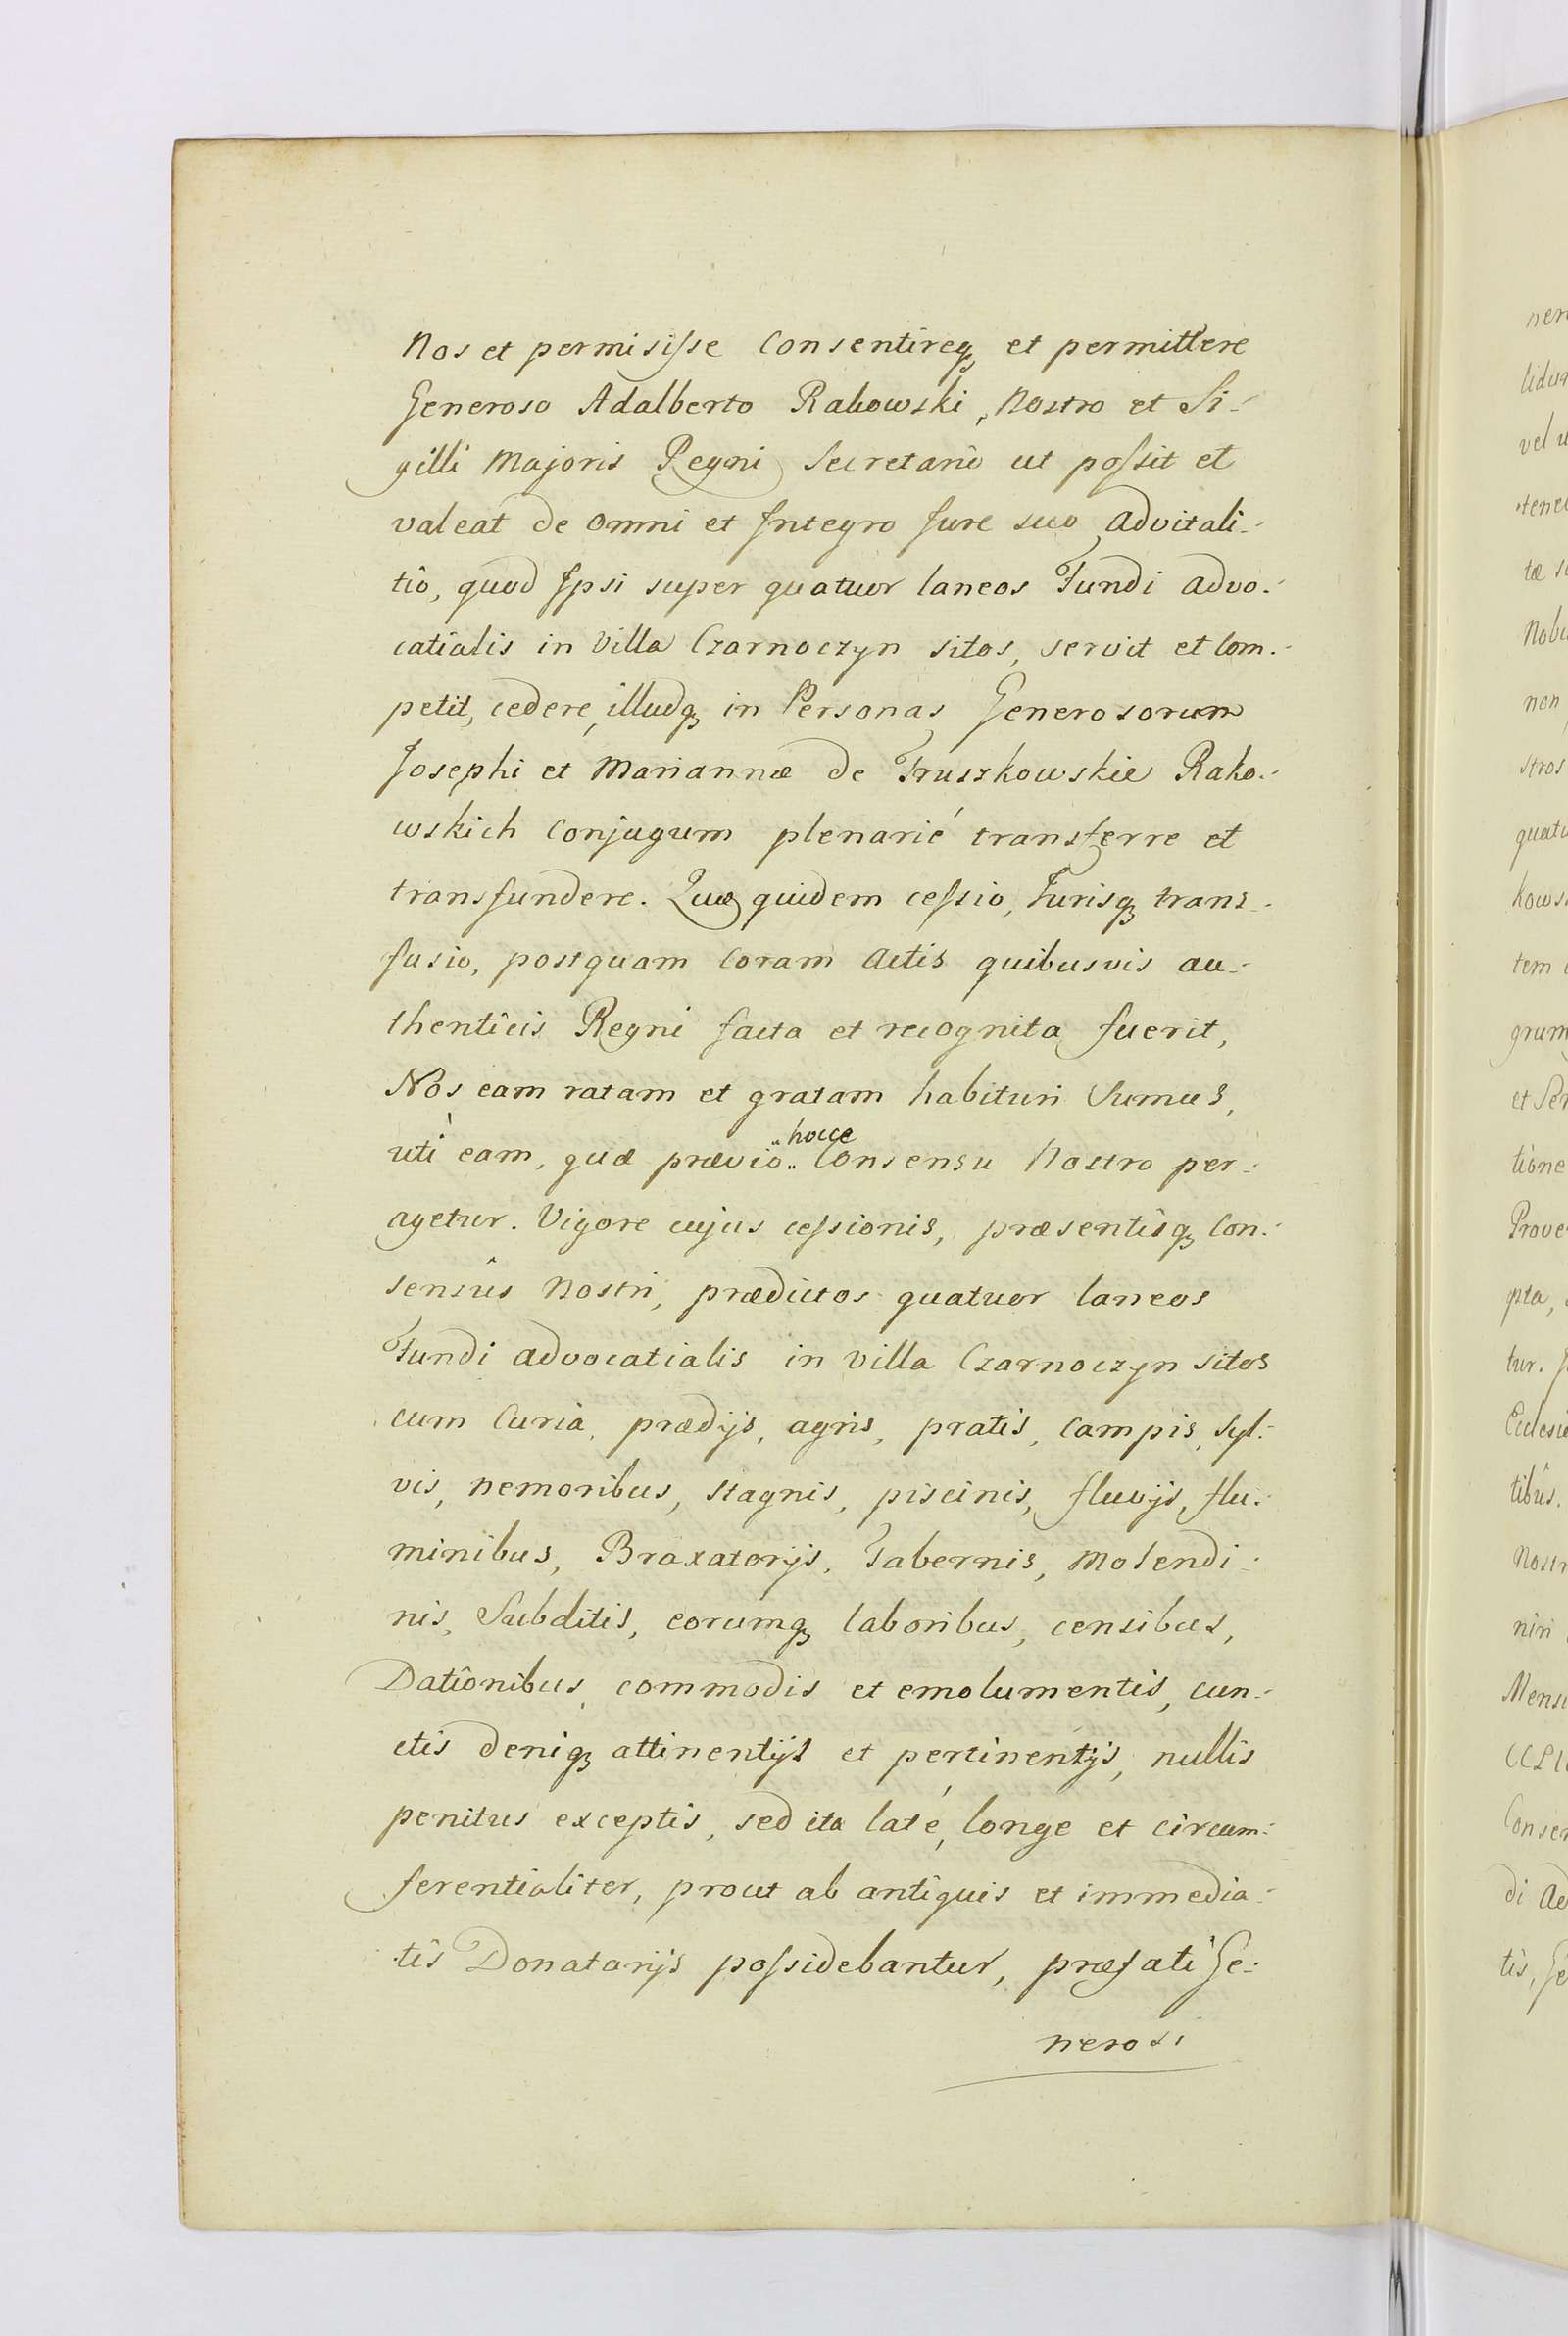 Nos et permisiſse Consentireq₃ et permittere
Generoso Adalberto Rakowski, Nostro et Si-
gilli Majoris Regni Secretariô ut poſsit et
valeat de omni et Integro Jure suo advitali-
tiô, quod Ipsi super quatuor laneos Fundi advo-
catialis in Villa Czarnoczyn sitos, servit et Com-
petit, cedere, illudq₃ in Personas Generosorum
Josephi et Mariannæ de Truszkowskie Rako-
wskich Conjugum plenarié transferre et
transfundere. Quæ quidem ceſsio, Jurisq₃ trans-
fusio, postquam Coram Actis quibusvis au-
thenticis Regni facta et recognita fuerit,
Nos eam ratam et gratam habituri Sumus,
uti eam, quæ prævio hocce Consensu Nostro per-
agetur. Vigore cujus ceſsionis, præsentisq₃ Con-
sensûs Nostri, prædictos quatuor laneos
Fundi advocatialis in villa Czarnoczyn sitos
cum Curia, prædijs, agris, pratis, Campis, Syl-
vis, nemoribus, stagnis, piscinis, fluvijs, flu-
minibus, Braxatorijs, Tabernis, Molendi-
nis, Subditis, eorumq₃ laboribus, censibus,
Dationibus, commodis et emolumentis, cun-
ctis deniq₃ attinentijs et pertinentijs, nullis
penitus exceptis, sed ita laté, longe et circum-
ferentialiter, prout ab antiquis et immedia-
tis Donatarijs poſsidebantur, præfati Ge-
nerosi